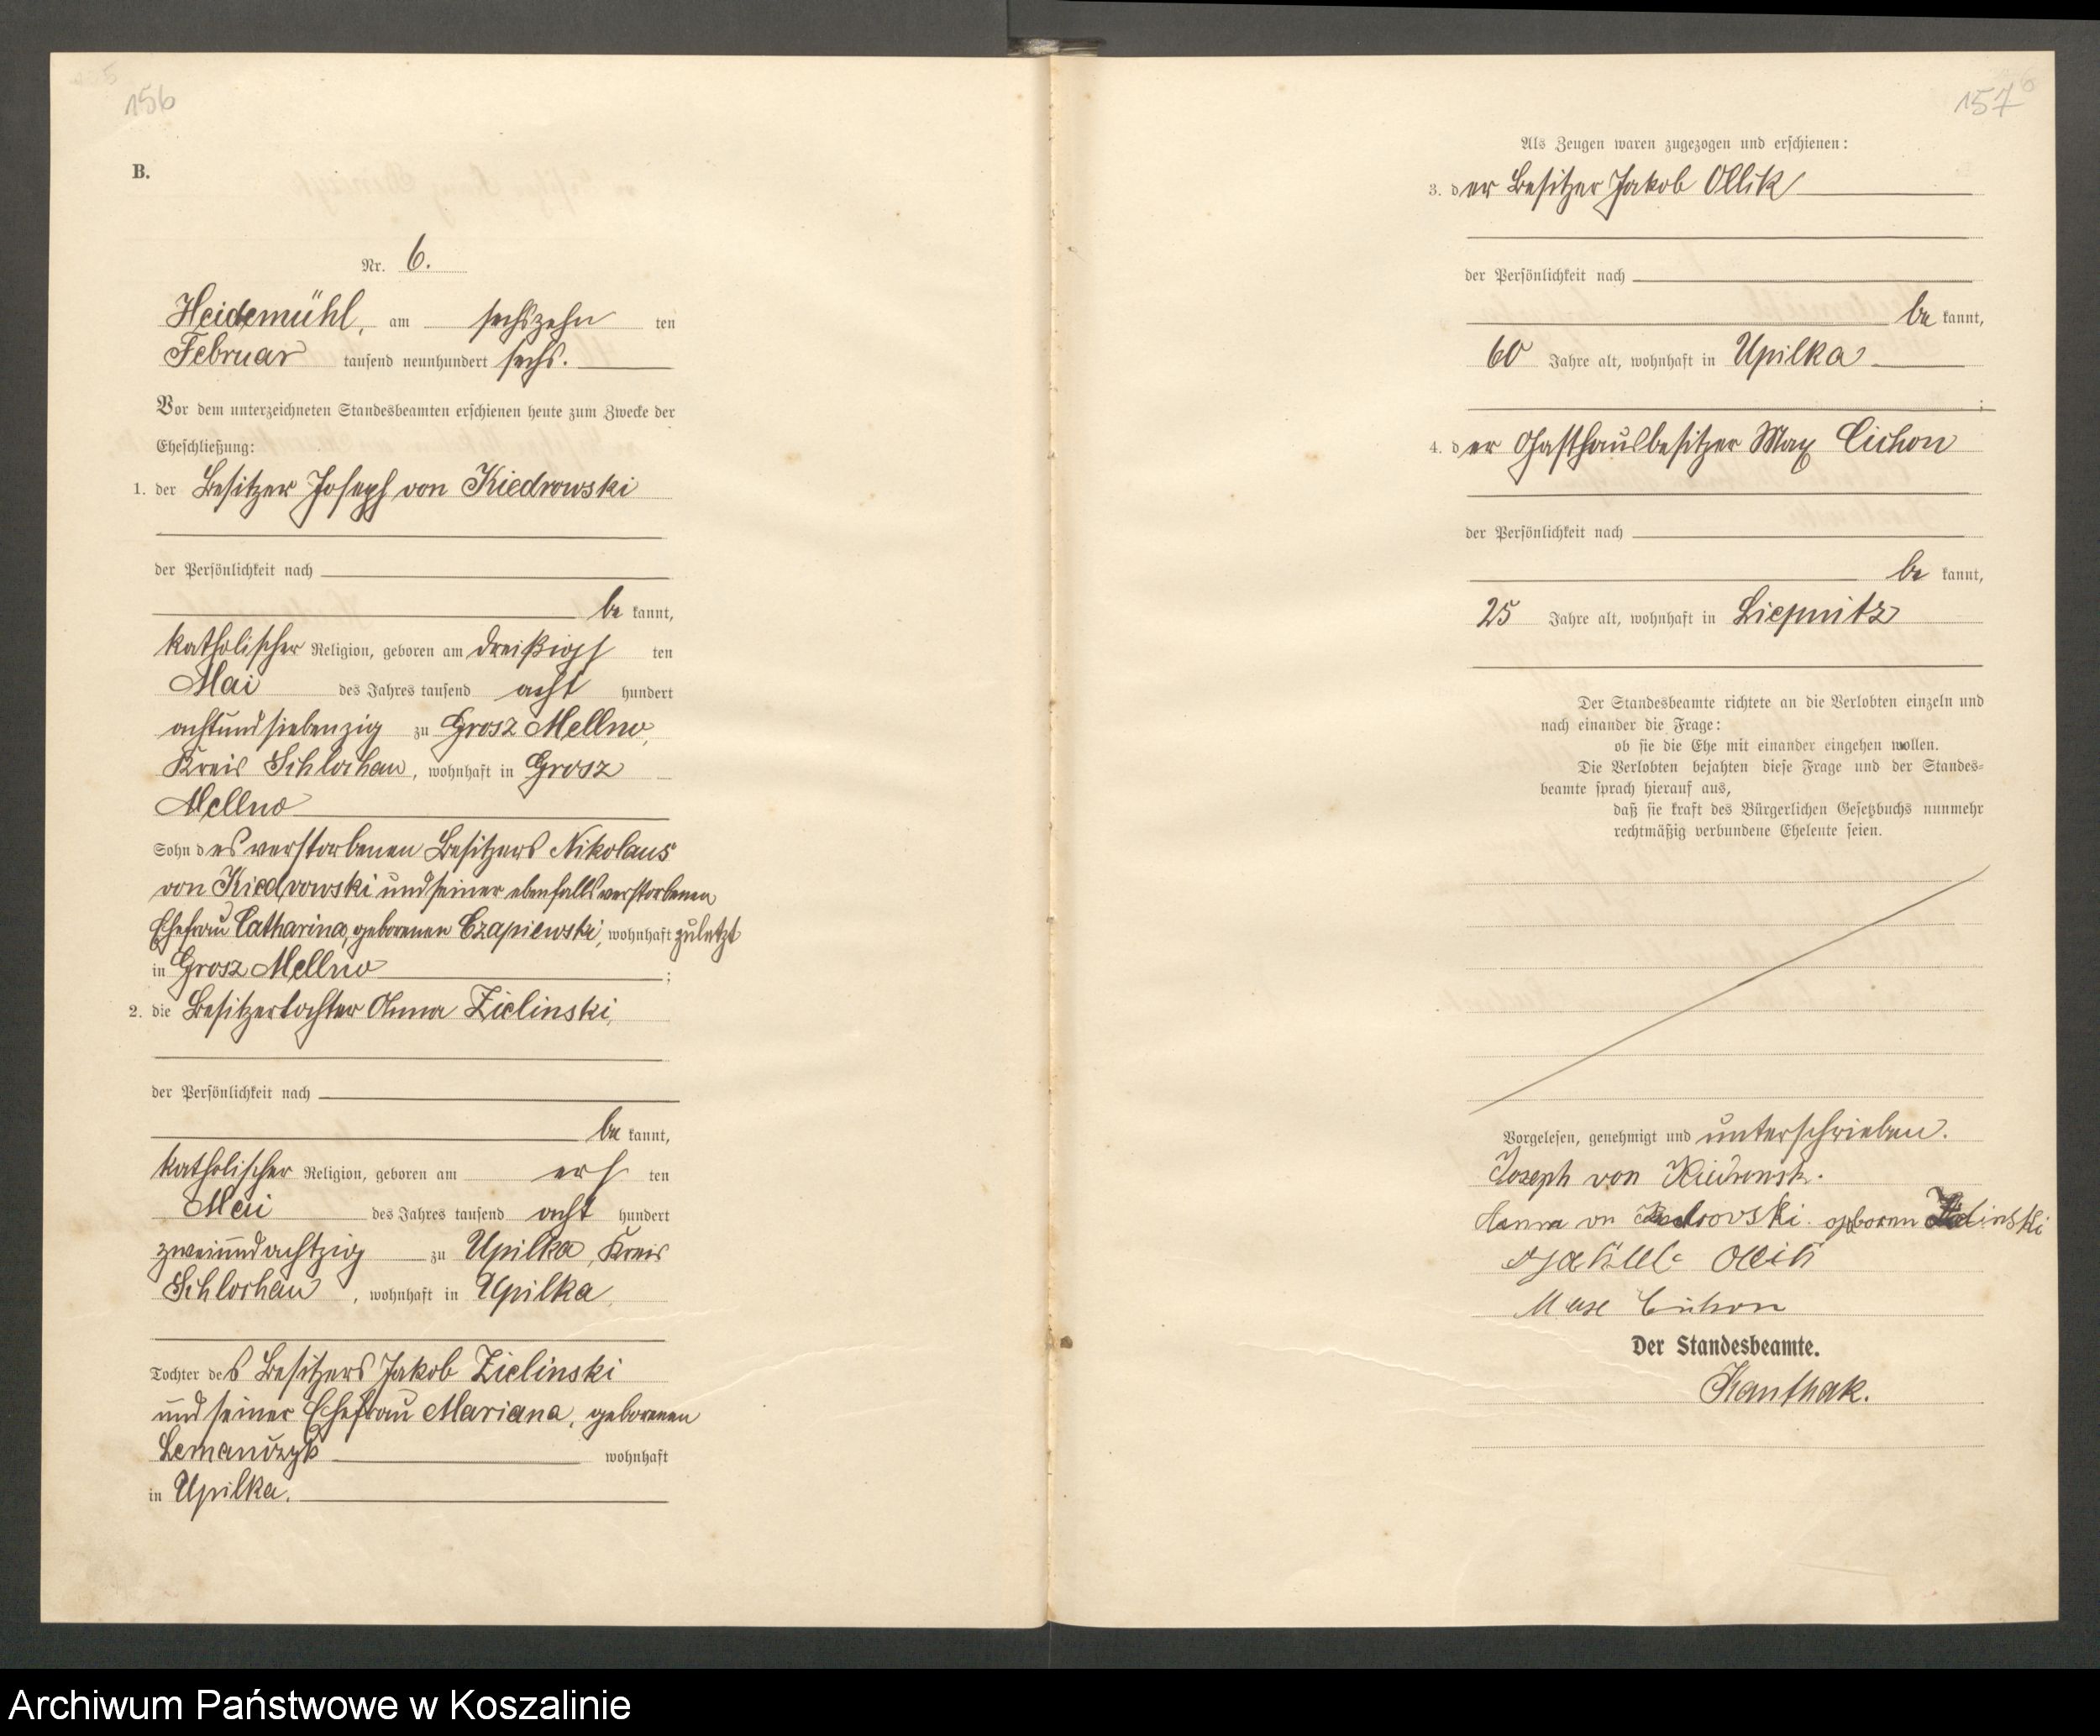 156
B.
Nr. 6.
Heidemühl, am sechszehn ten
Februar tausend neunhundert sechs.
Vor dem unterzeichneten Standesbeamten erschienen heute zum Zwecke der
Eheschließung:
1. der Besitzer Joseph von Kiedrowski
der Persönlichkeit nach
be kannt,
katholischer Religion, geboren am dreißigs ten
Mai des Jahres tausend acht hundert
achtundsiebenzig zu Grosz Mellno,
Kreis Schlochau, wohnhaft in Grosz
Mellno
Sohn des verstorbenen Besitzers Nikolaus
von Kiedrowski und seiner ebenfalls verstorbenen
Ehefrau Catharina, geborenen Czapiewski, wohnhaft zuletzt
in Grosz Mellno ;
2. die Besitzertochter Anna Zielinski,
der Persönlichkeit nach
be kannt,
katholischer Religion, geboren am ers ten
Mai des Jahres tausend acht hundert
zweiundachtzig zu Upilka, Kreis
Schlochau, wohnhaft in Upilka
Tochter des Besitzers Jakob Zielinski
und seiner Ehefrau Mariana, geborenen
Lemanczyk wohnhaft
in Upilka.
157
Als Zeugen waren zugezogen und erschienen:
3. der Besitzer Jakob Ollik
der Persönlichkeit nach
be kannt,
60 Jahre alt, wohnhaft in Upilka
;
4. der Gasthausbesitzer Max Cichon
der Persönlichkeit nach
be kannt,
25 Jahre alt, wohnhaft in Liepnitz
Der Standesbeamte richtete an die Verlobten einzeln und
nach einander die Frage:
ob sie die Ehe mit einander eingehen wollen.
Die Verlobten bejahten diese Frage und der Standes-
beamte sprach hierauf aus,
daß sie kraft des Bürgerlichen Gesetzbuchs nunmehr
rechtmäßig verbundene Eheleute seien.
Vorgelesen, genehmigt und unterschrieben.
Joseph von
geboren
Cichon
Der Standesbeamte.
Kanthak.
Archiwum Państwowe w Koszalinie